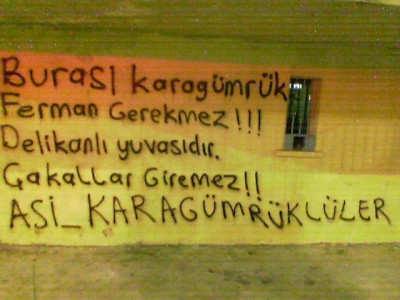 Burası karagümrük
Ferman Gerekmez!!!
Delikanlı yuvasıdır.
Çakallar Giremez!!
ASi_KARAGÜMRÜKLÜLER